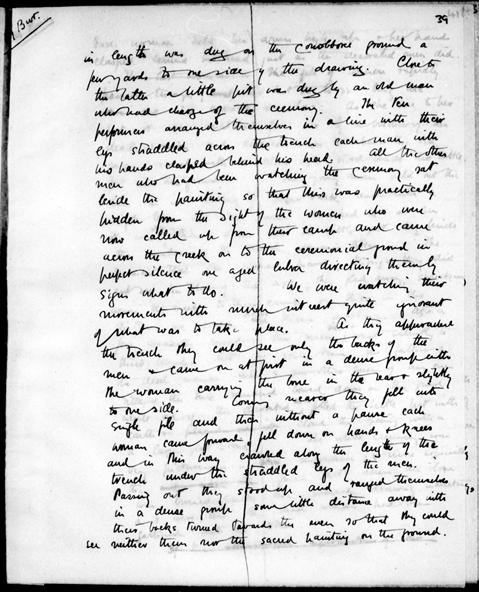 39
in length was dug on the corrobboree ground a
few yards to one side of the drawing. Close to
the latter a little pit was dug by an old man
who had charge of the ceremony. The ten
performers arranged themselves in a line with their
legs straddled across the trench each man with
his hands clasped behind his head. All the other
men who had been watching the ceremony sat
beside the painting so that this was practically
hidden from the sight of the women who were
now called up from their camp and came
across the creek on to the ceremonial ground in
perfect silence one aged lubra directing them by
signs what to do. We were watching their
movements with much interest quite ignorant
of what was to take place. As they approached
the trench they could see only the backs of the
men & came on at first in a dense group with
the woman carrying the bone in the rear & slightly
to one side. Coming nearer they fell into
single file and then without a pause each
woman came forward, fell down on hands & knees
and in this way crawled along the length of the
trench under the straddled legs of the men.
Passing out they stood up and ranged themselves
in a dense group some little distance away with
their backs turned towards the men so that they could
see neither them nor the sacred painting on the ground.